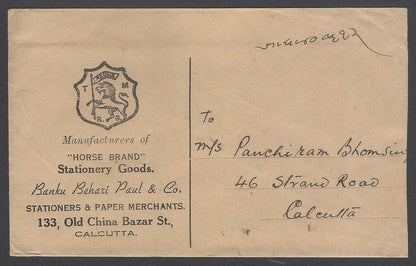 T M
R. G.
Manufacturers of
"HORSE BRAND"
Stationery Goods.
Banku Behari Paul & Co.
STATIONERS & PAPER MERCHANTS.
133, Old China Bazar St.,
CALCUTTA.
To
M/s Panchiram Bhomsing
46 Strand Road
Calcutta